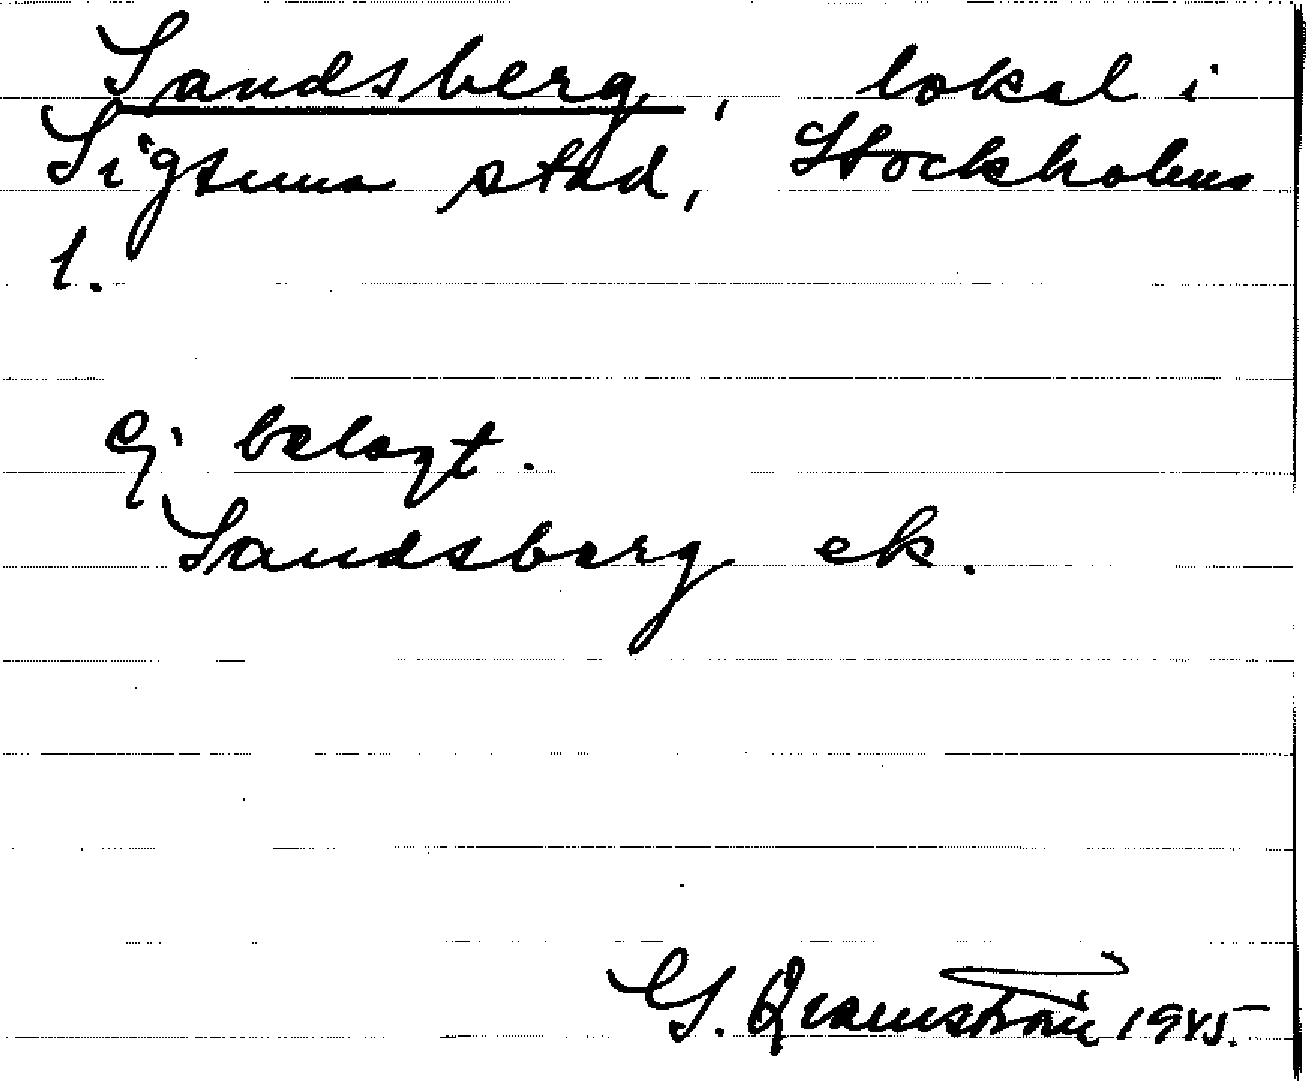 Sandsberg, lokal i
Sigtuna stad, Stockholms
l.
Ej belagt.
Sandsberg ek.
G. Qvarnström 1945.